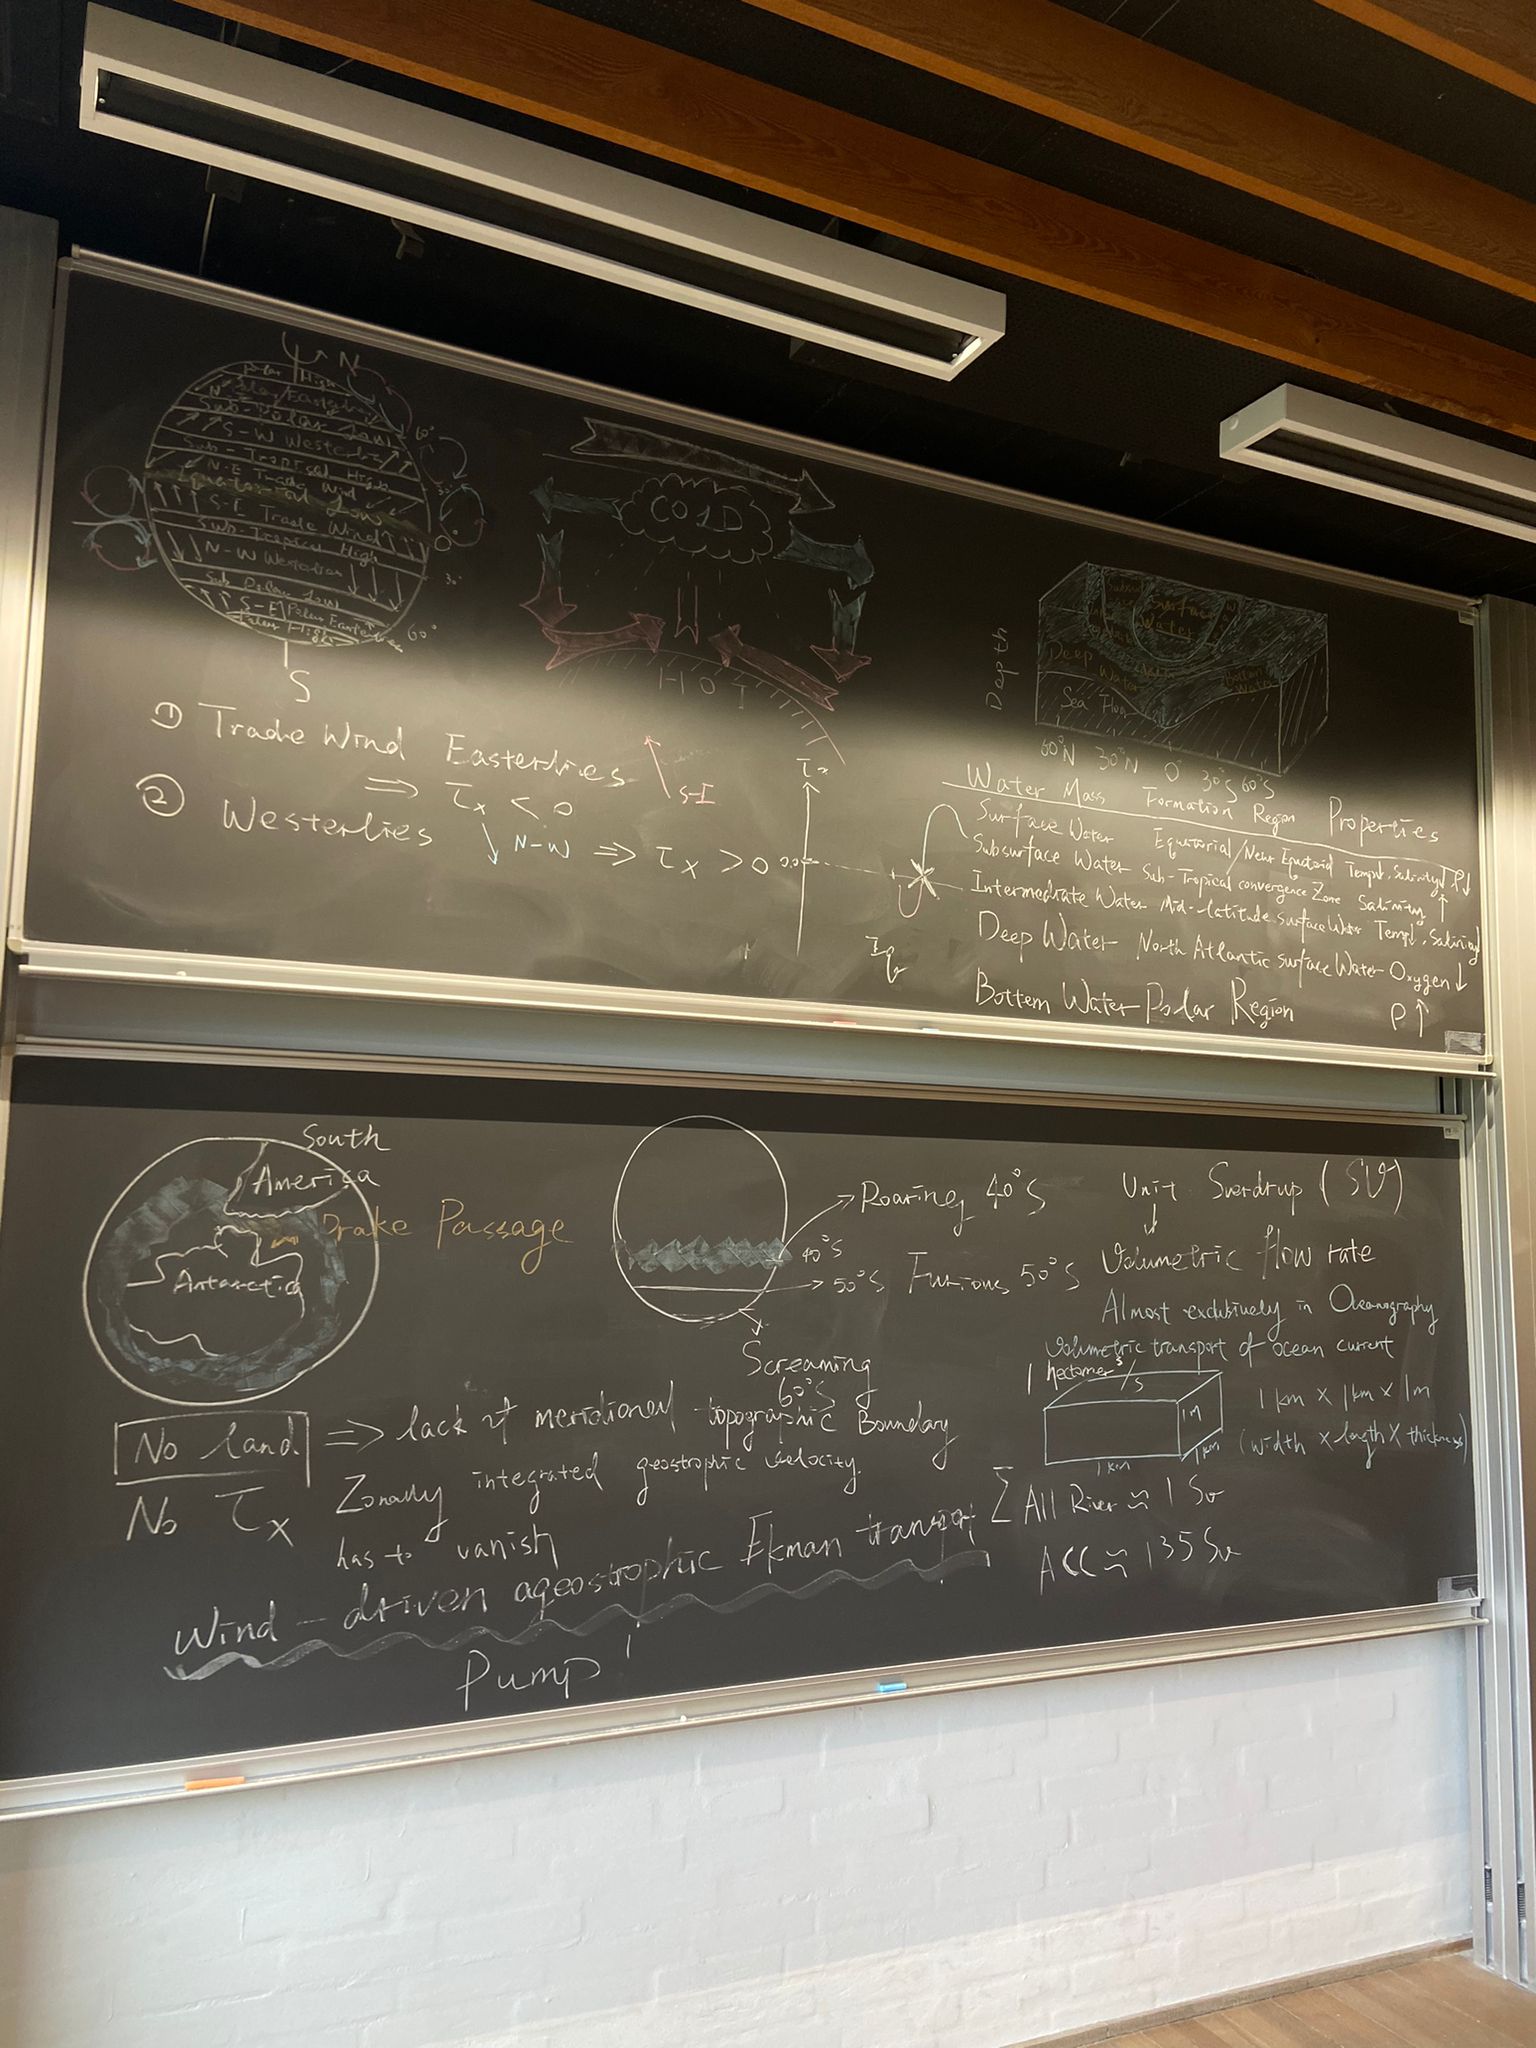 N
Polar High
Polar Easterlies
Sub-Polar Low
S-W Westerlies
Sub-Tropical High
N-E Trade Wind
Equatorial Low
S-E Trade Wind
Sub-Tropical High
N-W Westerlies
Sub Polar Low
S-E Polar Easterlies
Polar High
60°
0°
30°
60°
S
COLD
HOT
Depth
Surface Water
Deep Water
Bottom Water
Sea Floor
60°N 30°N 0° 30°S 60°S
① Trade Wind Easterlies
⇒ τx < 0
② Westerlies
N-W ⇒ τx > 0
τx
0.0
Water Mass Formation Region Properties
Surface Water Equatorial/Near Equatorial Temp↓, Salinity↓ ρ↓
Subsurface Water Sub-Tropical convergence Zone Salinity ↑
Intermediate Water Mid-latitude surface Water Temp↓, Salinity
Deep Water North Atlantic surface Water Oxygen ↓
Bottem Water Polar Region ρ↑
South
America
Drake Passage
Antarctica
Roaring 40°S
40°S
50°S Furious 50°S
Screaming
60°S
Unit Sverdrup (SV)
Volumetric flow rate
Almost exclusively in Oceanography
Volumetric transport of ocean current
1 hectometer³/s
1m
1km
1km
1 km × 1 km × 1m
(width × length × thickness)
Σ All River ≈ 1 Sv
ACC ≈ 135 Sv
No land ⇒ lack of meridional topographic Boundary
No τx
Zonally integrated geostrophic velocity
has to vanish
Wind-driven ageostrophic Ekman transport
Pump